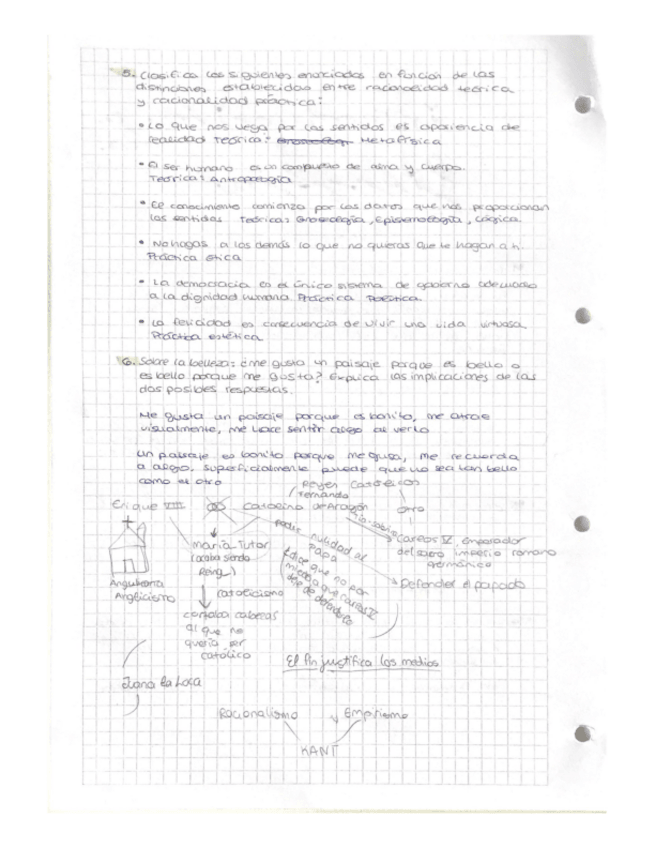 5. Clasifica los siguientes enunciados en función de las
distinciones establecidas entre racionalidad teórica
y racionalidad práctica:
• Lo que nos llega por los sentidos es apariencia de
realidad Teórica: Metafísica
• El ser humano es un compuesto de alma y cuerpo.
Teórica: Antropología
• El conocimiento comienza por los datos que nos proporcionan
los sentidos Teórica: Gnoseología, Epistemología, Lógica.
• No hagas a los demás lo que no quieras que te hagan a ti.
Práctica ética
• La democracia es el único sistema de gobierno adecuado
a la dignidad humana. Práctica Política.
• La felicidad es consecuencia de vivir una vida virtuosa.
Práctica estética.
6. Sobre la belleza: ¿me gusta un paisaje porque es bello o
es bello porque me gusta? Explica las implicaciones de las
dos posibles respuestas.
Me gusta un paisaje porque es bonito, me atrae
visualmente, me hace sentir algo al verlo
Un paisaje es bonito porque me gusa, me recuerda
a algo, superficialmente puede que no sea tan bello
como el otro
Reyes Católicos
Fernando
Enrique VIII Catalina de Aragón otro
tío-sobrino
Carlos V, emperador
del sacro imperio romano
germánico
pedir nulidad al
PAPA
dice que no por
miedo a que Carlos V
deje de defenderle
Defender el papado
María Tudor
(acaba siendo
Reina)
catolicismo
cortaba cabezas
al que no
quería ser
católico
Anglicana
Anglicismo
El fin justifica los medios
Juana la Loca
Racionalismo Empirismo
KANT